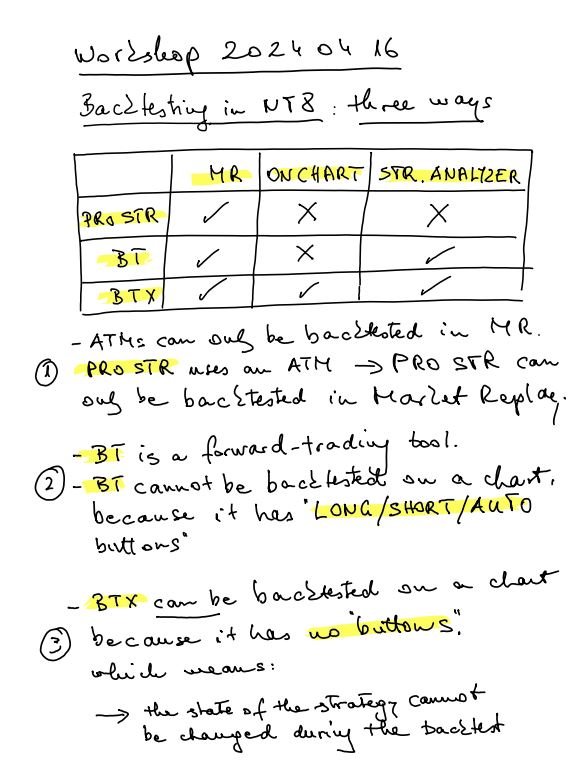 Workshop 2024 04 16
Backtesting in NT8 : three ways
MR ON CHART STR. ANALYZER
PRO STR ✓ X X
BT ✓ X ✓
BTX ✓ ✓ ✓
- ATMs can only be backtested in MR.
① PRO STR uses an ATM → PRO STR can
only be backtested in Market Replay.
- BT is a forward-trading tool.
② - BT cannot be backtested on a chart,
because it has "LONG/SHORT/AUTO
buttons"
- BTX can be backtested on a chart
③ because it has no "buttons",
which means:
→ the state of the strategy cannot
be changed during the backtest